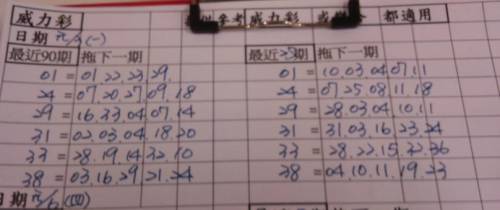 威力彩
參考 威力彩 都適用
日期 (一)
最近90期 拖下一期
01 = 01.22.23.29.
24 = 07.20.27.09.18
29 = 16.33.04.07.14
31 = 02.03.04.18.20
33 = 28.19.14.32.10
38 = 03.16.29.21.24
日期 (四)
最近25期 拖下一期
01 = 10.03.04.07.11
24 = 07.25.08.11.18
29 = 28.03.04.10.11
31 = 31.03.16.23.24
33 = 28.22.15.32.36
38 = 04.10.11.19.23